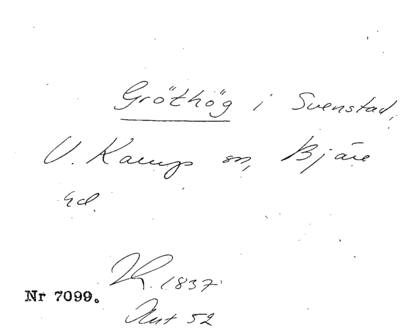 Gröthög i Svenstad,
V. Karup sn, Bjäre
hd.
1837
Nr 7099.
52